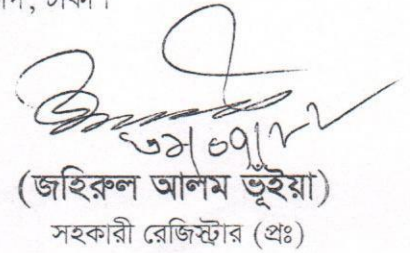 ঢাকা।
(জহিরুল আলম ভূঁইয়া)
সহকারী রেজিস্ট্রার (প্রঃ)